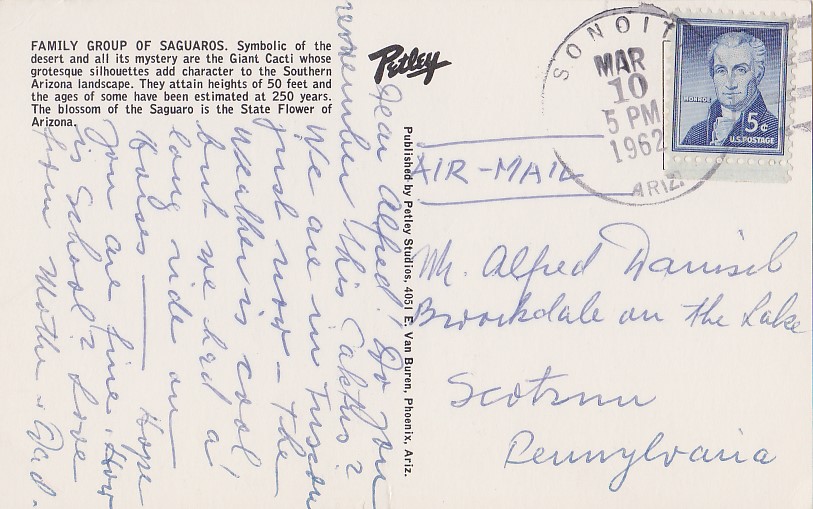 FAMILY GROUP OF SAGUAROS. Symbolic of the
desert and all its mystery are the Giant Cacti whose
grotesque silhouettes add character to the Southern
Arizona landscape. They attain heights of 50 feet and
the ages of some have been estimated at 250 years.
The blossom of the Saguaro is the State Flower of
Arizona.
Petley
Published by Petley Studios, 4051 E. Van Buren, Phoenix, Ariz.
Dear Alfred! Do you
remember this Caktus?
We are in Tusson
just now – the
weather is cool
but we had a
long ride on
Horses — Hope
you are fine. How
is School? Love
from Mother & Dad.
SONOIT
MAR
10
5 PM
1962
ARIZ
MONROE
5¢
U.S. POSTAGE
AIR-MAIL
Mr. Alfred
Brookdale on the Lake
Scotrun
Pennsylvania